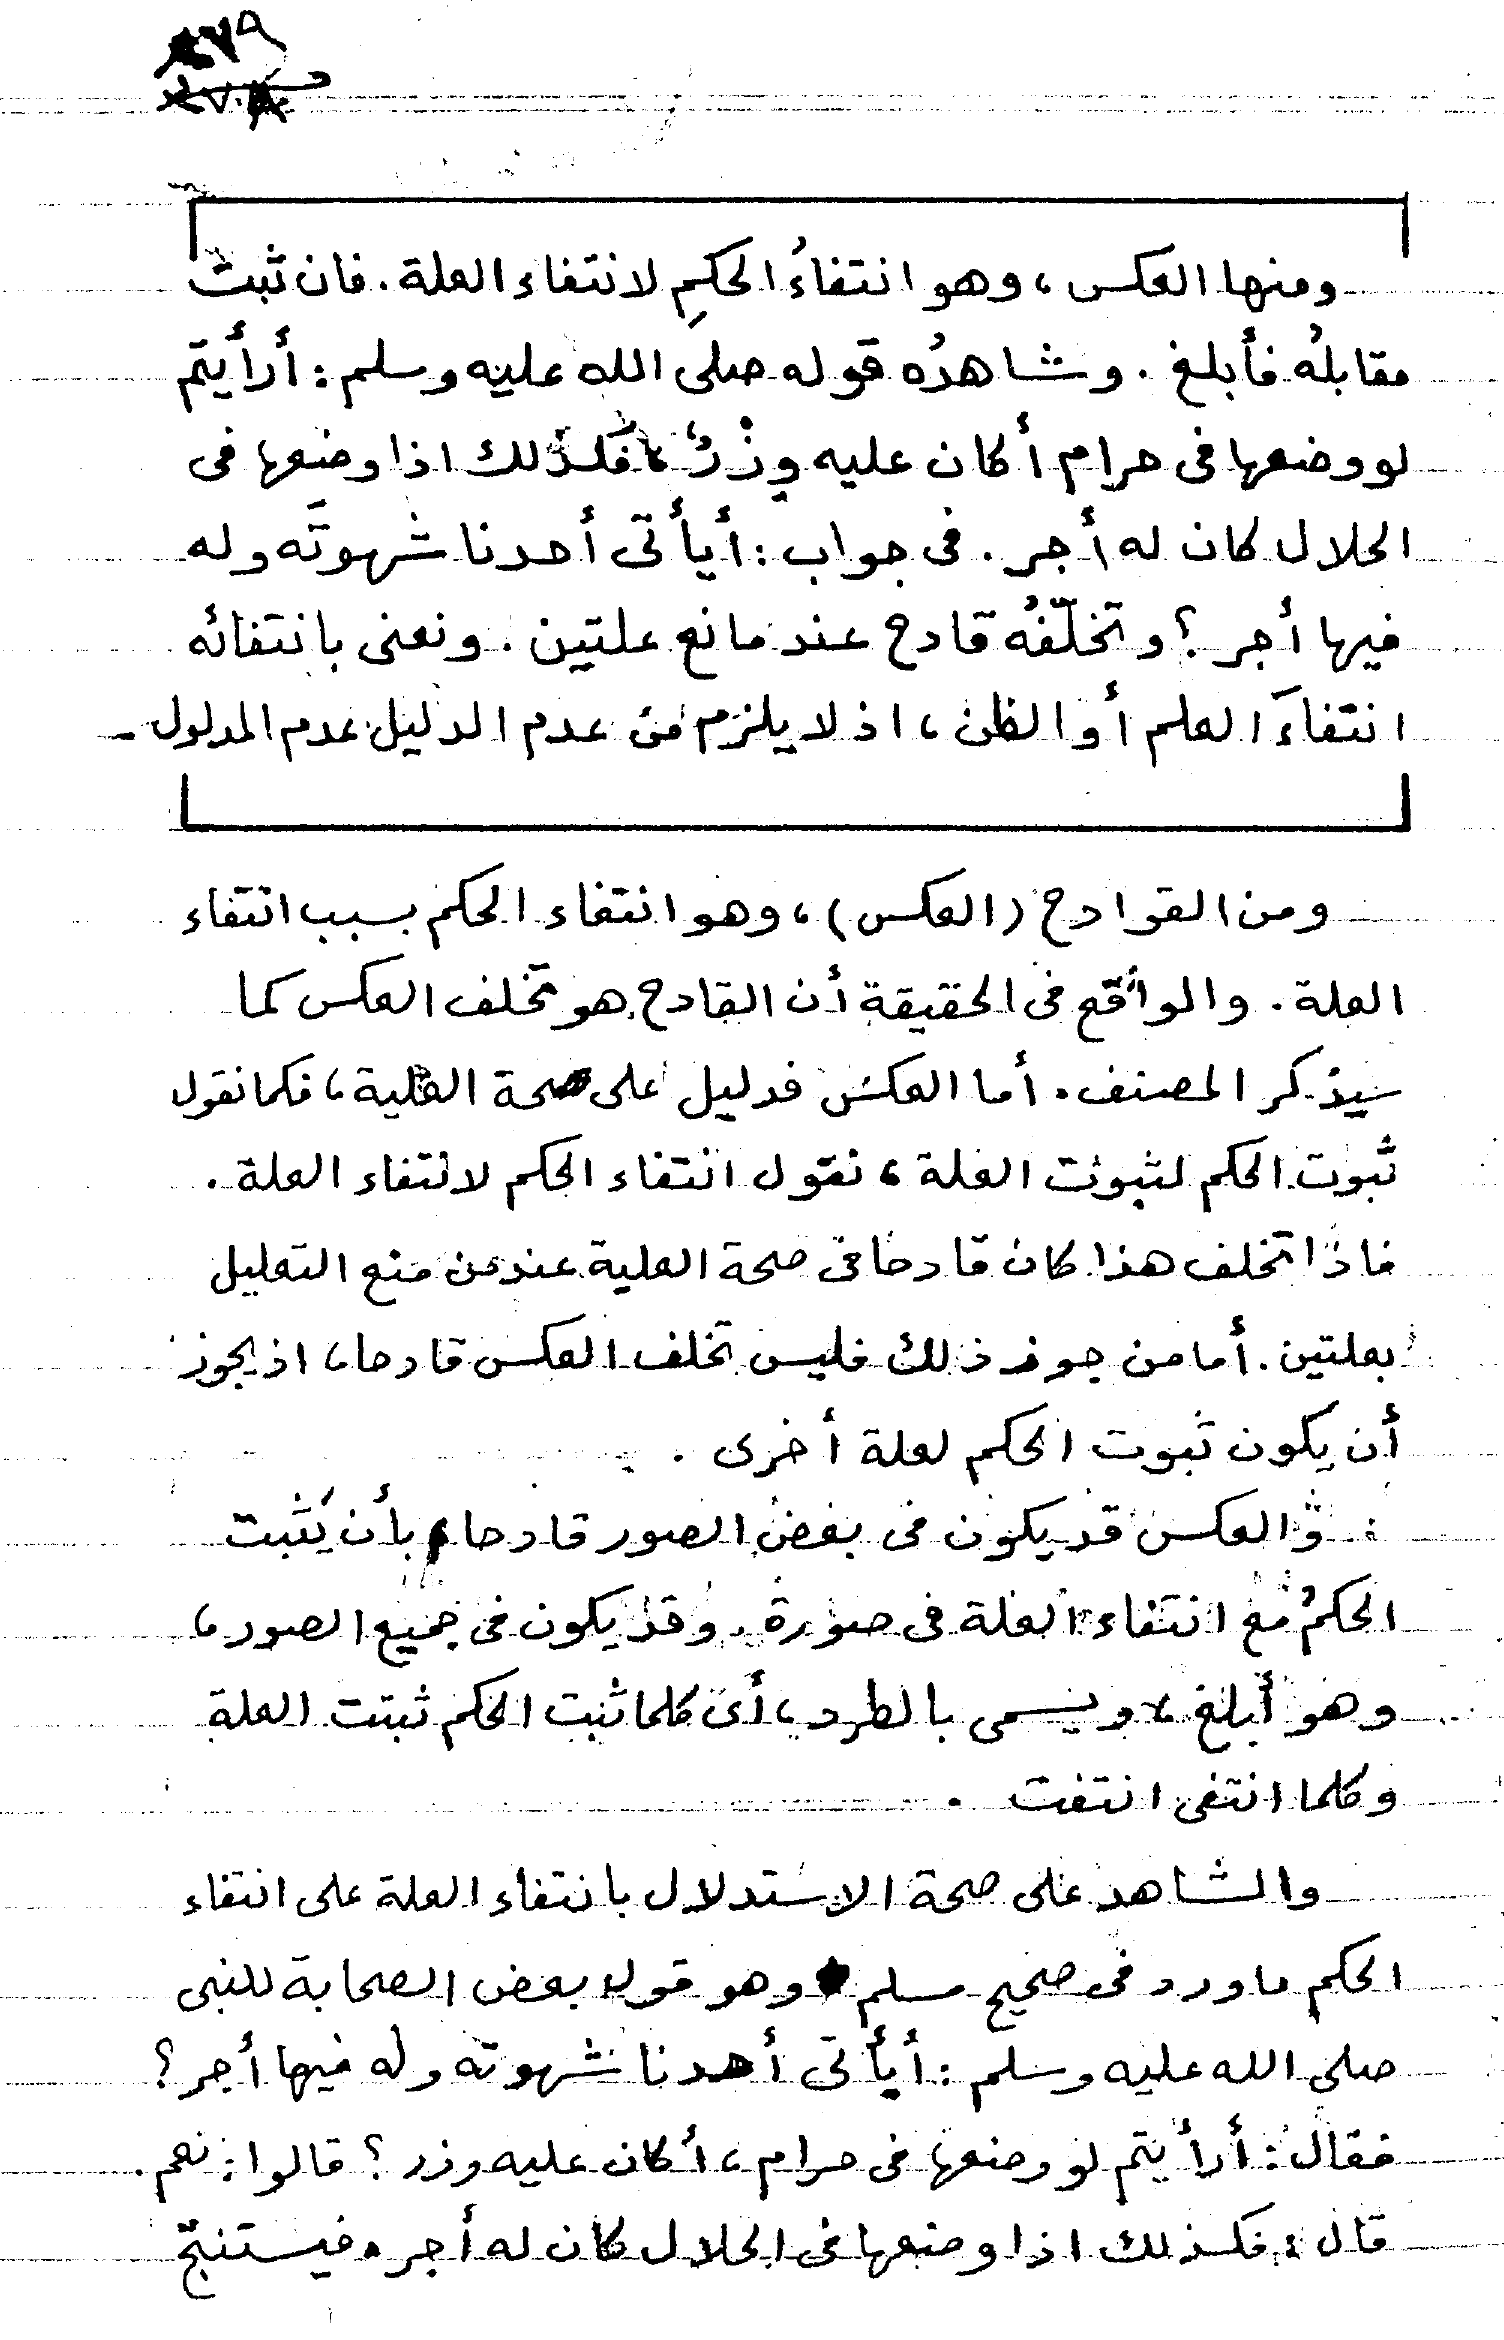 ومنها العكس، وهو انتفاءُ الحكمِ لانتفاء العلة. فان ثبت
مقابلُه فأبلغ. وشاهدُه قوله صلى الله عليه وسلم: أرأيتم
لو وضعها فى حرام أكان عليه وِزْرٌ، فكذلك اذا وضعها فى
الحلال كان له أجر. فى جواب: أيأتى أحدنا شهوتَه وله
فيها أجر؟ وتخلّفُه قادح عند مانع علتين. ونعنى بانتفائه
انتفاءَ العلم أو الظن، اذ لا يلزم من عدم الدليل عدم المدلول -
ومن القوادح (العكس)، وهو انتفاء الحكم بسبب انتفاء
العلة. والواقع فى الحقيقة أن القادح هو تخلف العكس كما
سيذكر المصنف. أما العكس فدليل على صحة العلية، فكما نقول
ثبوت الحكم لثبوت العلة، نقول انتفاء الحكم لانتفاء العلة.
فاذا تخلف هذا كان قادحا فى صحة العلية عند من منع التعليل
بعلتين. أما من جوز ذلك فليس تخلف العكس قادحا، اذ يجوز
أن يكون ثبوت الحكم لعلة أخرى.
والعكس قد يكون فى بعض الصور قادحا، بأن يَثبت
الحكمُ مع انتفاء العلة فى صورة. وقد يكون فى جميع الصور،
وهو أبلغ، ويسمى بالطرد، أى كلما ثبت الحكم ثبتت العلة
وكلما انتفى انتفت.
والشاهد على صحة الاستدلال بانتفاء العلة على انتفاء
الحكم ما ورد فى صحيح مسلم وهو قول بعض الصحابة للنبى
صلى الله عليه وسلم: أيأتى أحدنا شهوته وله فيها أجر؟
فقال: أرأيتم لو وضعها فى حرام، أكان عليه وزر؟ قالوا: نعم.
قال: فكذلك اذا وضعها فى الحلال كان له أجر. فيستنتج